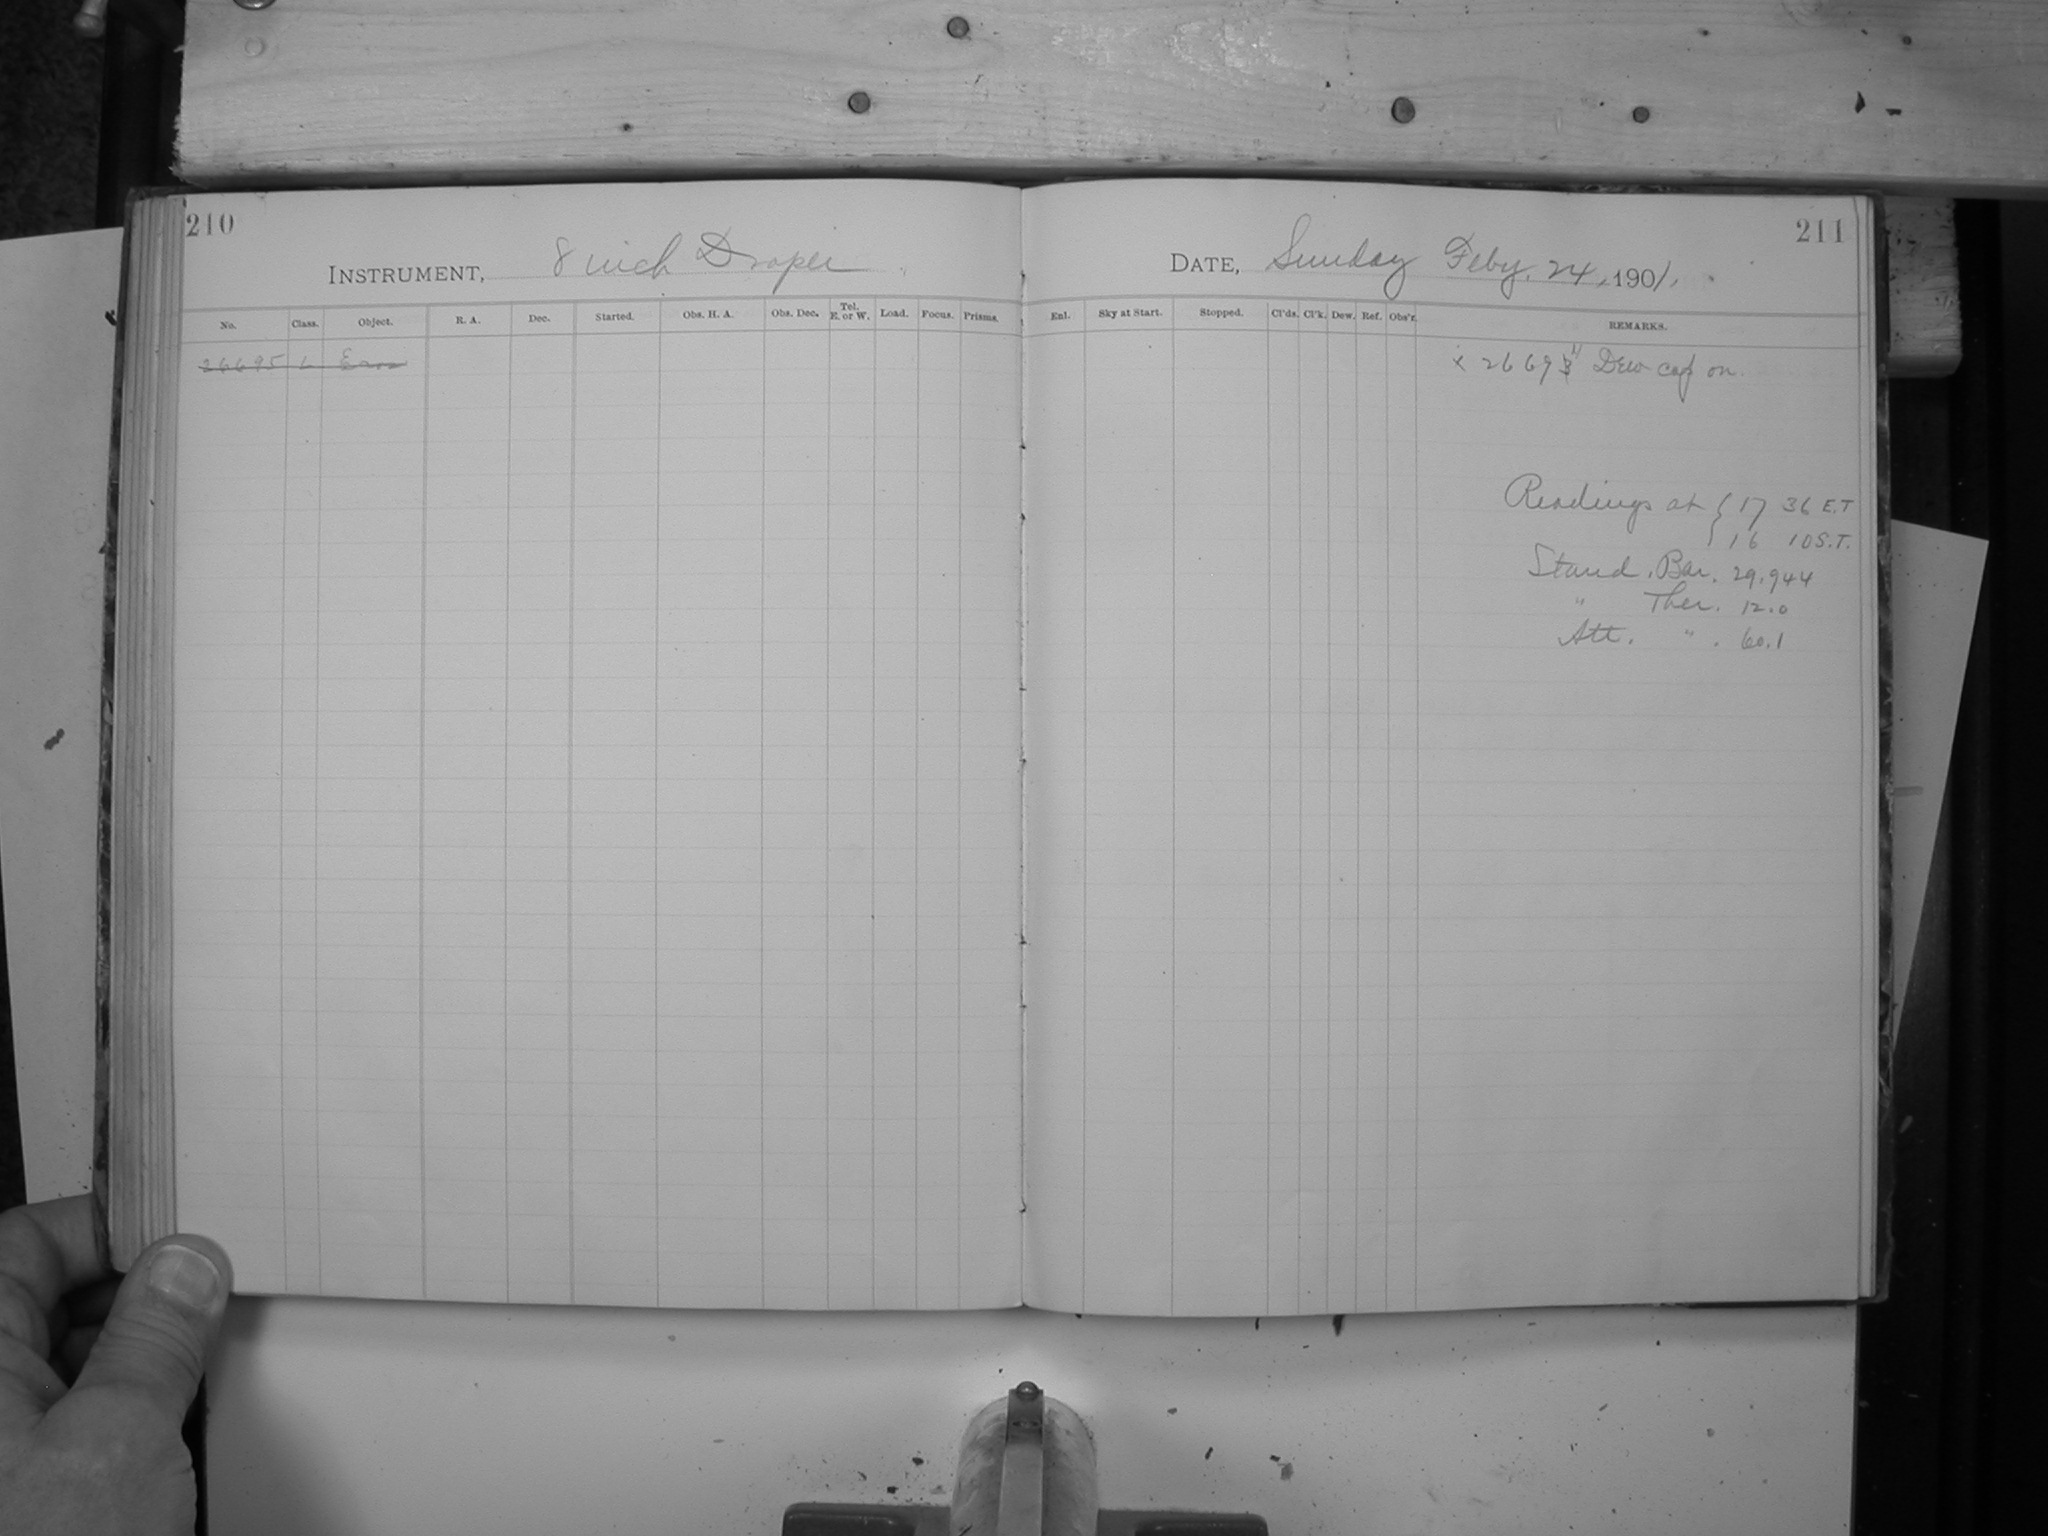 210
INSTRUMENT, 8 inch Draper
No. Class. Object. R. A. Dec. Started. Obs. H. A. Obs. Dec. Tel. E. or W. Load. Focus. Prisms.
26695 L Eros
211
DATE, Sunday Feby. 24, 1901,
Enl. Sky at Start. Stopped. Cl'ds. Cl'k. Dew. Ref. Obs'r. REMARKS.
x 2669 Dew cap on.
Readings at { 17 36 E.T
16 10 S.T.
Stand. Bar. 29.944
" Ther. 12.0
Att. " . 60.1